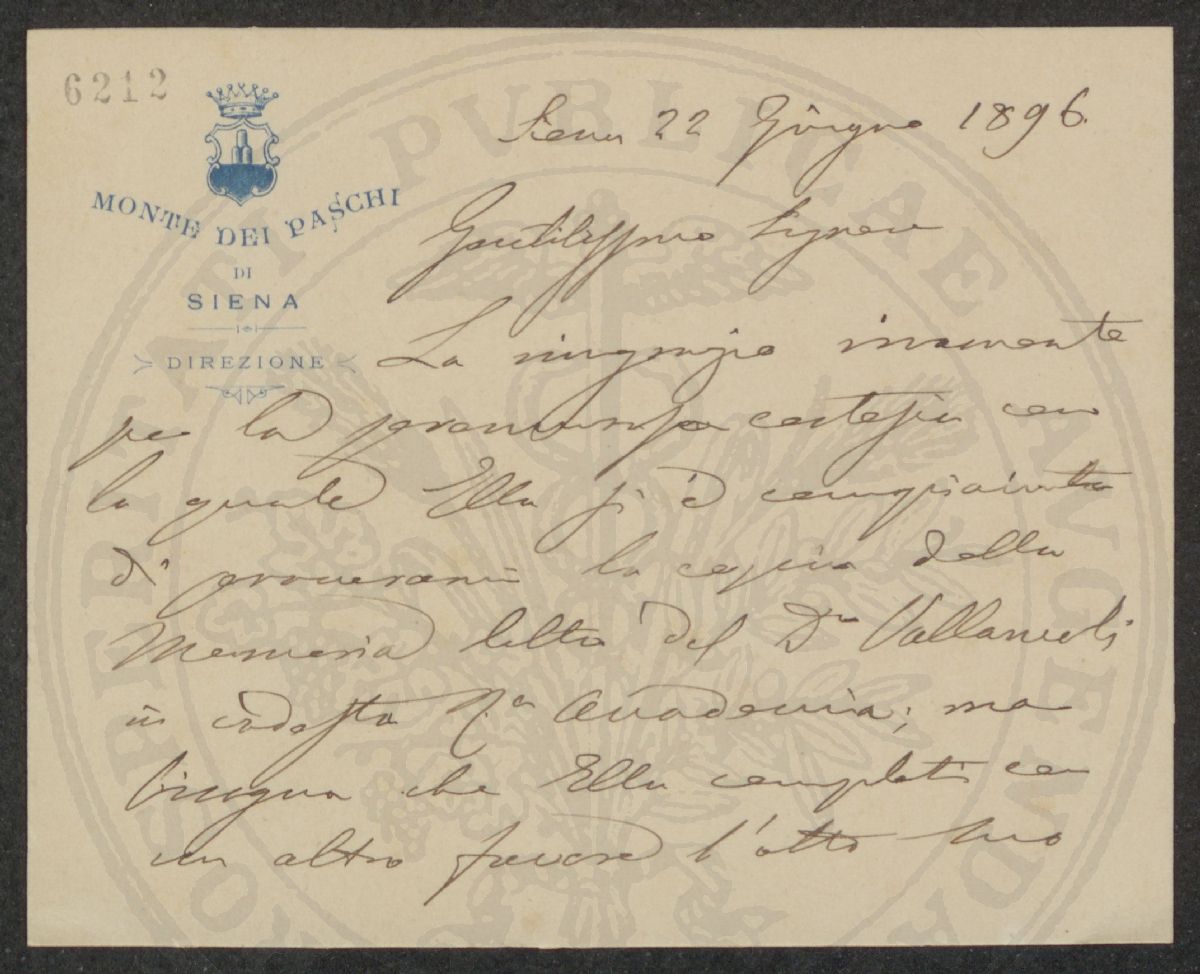 6212
MONTE DEI PASCHI
DI
SIENA
DIREZIONE
Siena 22 Giugno 1896.
Gentilissimo Signore
La ringrazio vivamente
per la premurosa cortesia con
la quale Ella si è compiaciuta
di procurarmi la copia della
Memoria letta dal Dr Vallarneoli
in codesta R.a Accademia; ma
bisogna che Ella completi con
un altro favore l'atto suo
PROSPERITATI PUBLICAE AUGENDAE